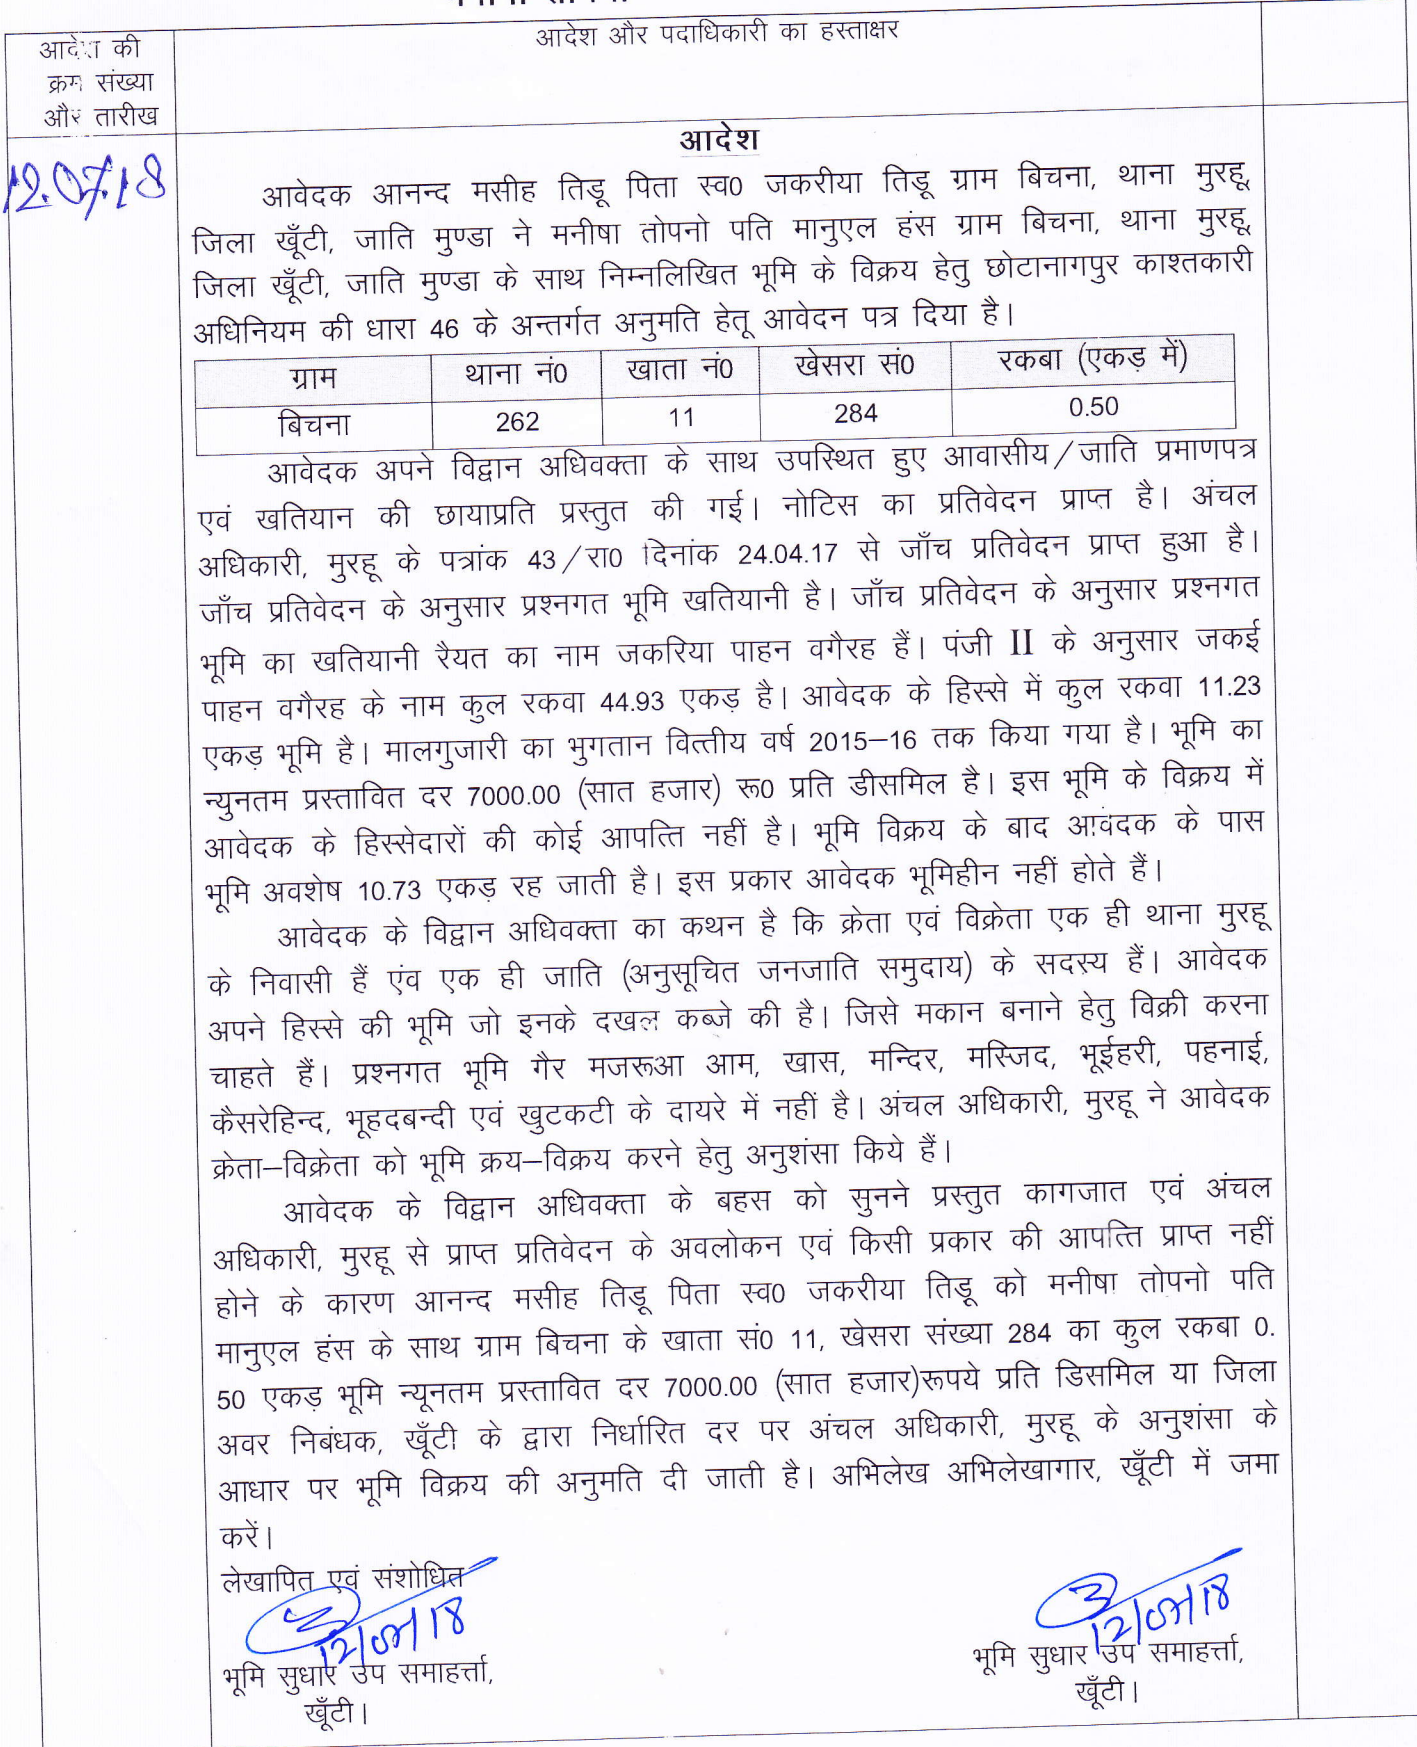 आदेश की
क्रम संख्या
और तारीख
आदेश और पदाधिकारी का हस्ताक्षर
आदेश
12.07.18
आवेदक आनन्द मसीह तिडू पिता स्व0 जकरीया तिडू ग्राम बिचना, थाना मुरहू,
जिला खूँटी, जाति मुण्डा ने मनीषा तोपनो पति मानुएल हंस ग्राम बिचना, थाना मुरहू,
जिला खूँटी, जाति मुण्डा के साथ निम्नलिखित भूमि के विक्रय हेतु छोटानागपुर काश्तकारी
अधिनियम की धारा 46 के अन्तर्गत अनुमति हेतू आवेदन पत्र दिया है।
ग्राम थाना नं0 खाता नं0 खेसरा सं0 रकबा (एकड़ में)
बिचना 262 11 284 0.50
आवेदक अपने विद्वान अधिवक्ता के साथ उपस्थित हुए आवासीय/जाति प्रमाणपत्र
एवं खतियान की छायाप्रति प्रस्तुत की गई। नोटिस का प्रतिवेदन प्राप्त है। अंचल
अधिकारी, मुरहू के पत्रांक 43/रा0 दिनांक 24.04.17 से जाँच प्रतिवेदन प्राप्त हुआ है।
जाँच प्रतिवेदन के अनुसार प्रश्नगत भूमि खतियानी है। जाँच प्रतिवेदन के अनुसार प्रश्नगत
भूमि का खतियानी रैयत का नाम जकरिया पाहन वगैरह हैं। पंजी II के अनुसार जकई
पाहन वगैरह के नाम कुल रकवा 44.93 एकड़ है। आवेदक के हिस्से में कुल रकवा 11.23
एकड़ भूमि है। मालगुजारी का भुगतान वित्तीय वर्ष 2015–16 तक किया गया है। भूमि का
न्युनतम प्रस्तावित दर 7000.00 (सात हजार) रू0 प्रति डीसमिल है। इस भूमि के विक्रय में
आवेदक के हिस्सेदारों की कोई आपत्ति नहीं है। भूमि विक्रय के बाद आवेदक के पास
भूमि अवशेष 10.73 एकड़ रह जाती है। इस प्रकार आवेदक भूमिहीन नहीं होते हैं।
आवेदक के विद्वान अधिवक्ता का कथन है कि क्रेता एवं विक्रेता एक ही थाना मुरहू
के निवासी हैं एंव एक ही जाति (अनुसूचित जनजाति समुदाय) के सदस्य हैं। आवेदक
अपने हिस्से की भूमि जो इनके दखल कब्जे की है। जिसे मकान बनाने हेतु विक्री करना
चाहते हैं। प्रश्नगत भूमि गैर मजरूआ आम, खास, मन्दिर, मस्जिद, भूईहरी, पहनाई,
कैसरेहिन्द, भूहदबन्दी एवं खुटकटी के दायरे में नहीं है। अंचल अधिकारी, मुरहू ने आवेदक
क्रेता–विक्रेता को भूमि क्रय–विक्रय करने हेतु अनुशंसा किये हैं।
आवेदक के विद्वान अधिवक्ता के बहस को सुनने प्रस्तुत कागजात एवं अंचल
अधिकारी, मुरहू से प्राप्त प्रतिवेदन के अवलोकन एवं किसी प्रकार की आपत्ति प्राप्त नहीं
होने के कारण आनन्द मसीह तिडू पिता स्व0 जकरीया तिडू को मनीषा तोपनो पति
मानुएल हंस के साथ ग्राम बिचना के खाता सं0 11, खेसरा संख्या 284 का कुल रकबा 0.
50 एकड़ भूमि न्यूनतम प्रस्तावित दर 7000.00 (सात हजार)रूपये प्रति डिसमिल या जिला
अवर निबंधक, खूँटी के द्वारा निर्धारित दर पर अंचल अधिकारी, मुरहू के अनुशंसा के
आधार पर भूमि विक्रय की अनुमति दी जाती है। अभिलेख अभिलेखागार, खूँटी में जमा
करें।
लेखापित एवं संशोधित
12/07/18
12/07/18
भूमि सुधार उप समाहर्त्ता, भूमि सुधार उप समाहर्त्ता,
खूँटी। खूँटी।